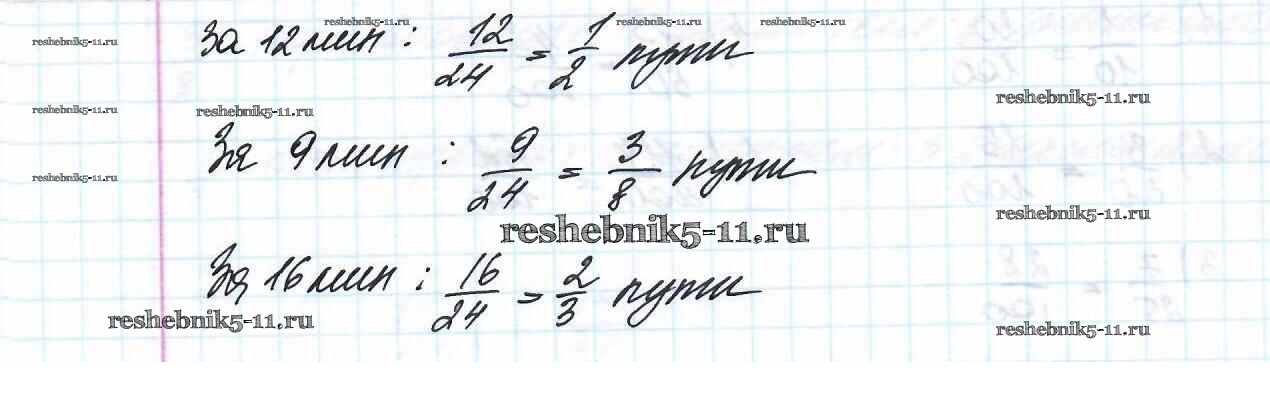 reshebnik5-11.ru reshebnik5-11.ru reshebnik5-11.ru
reshebnik5-11.ru
За 12 мин : 12/24 = 1/2 пути
reshebnik5-11.ru
reshebnik5-11.ru reshebnik5-11.ru
За 9 мин : 9/24 = 3/8 пути
reshebnik5-11.ru
reshebnik5-11.ru
reshebnik5-11.ru
За 16 мин : 16/24 = 2/3 пути
reshebnik5-11.ru
reshebnik5-11.ru